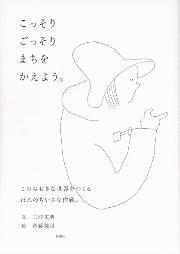 こっそり
ごっそり
まちを
かえよう。
このおおきな世界をつくる
ほんのちいさな作戦。
文 三浦丈典
絵 斉藤弥世
彰国社